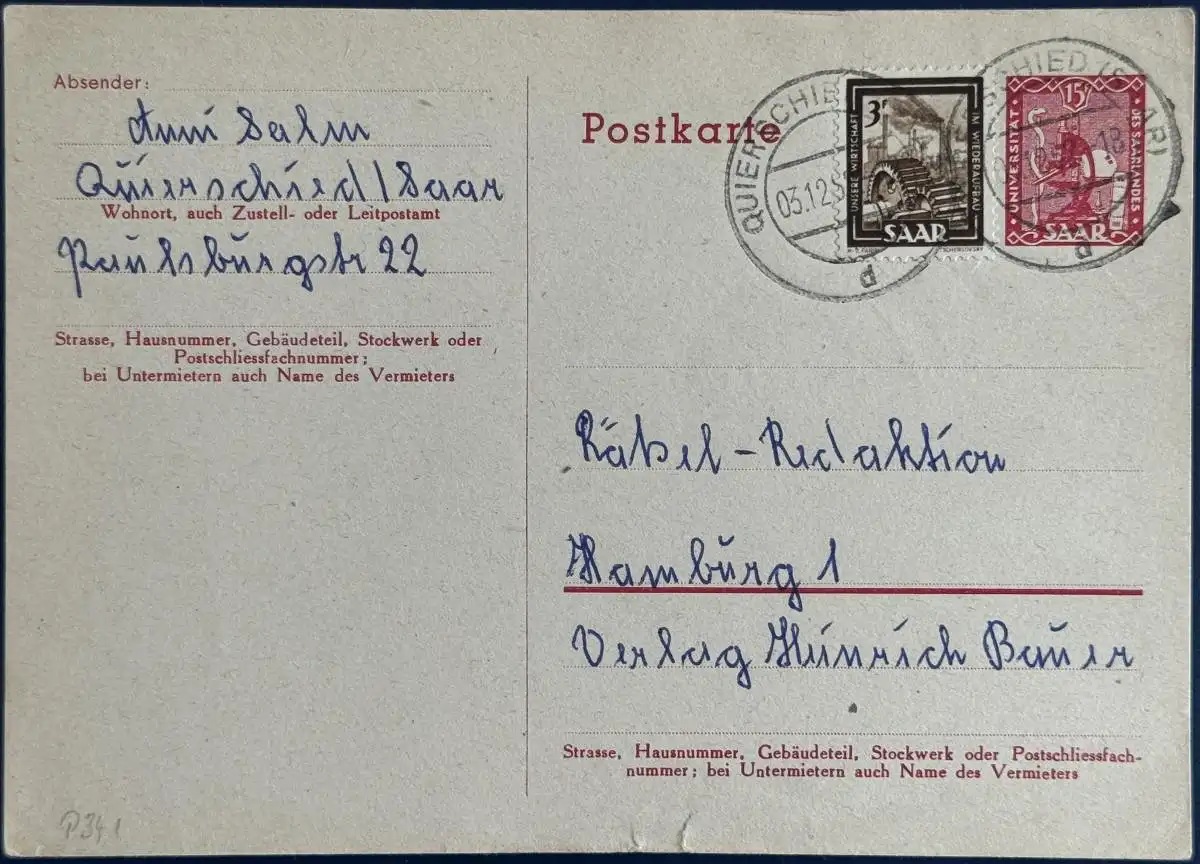 Absender:
Anni Salm
Quierschied/Saar
Wohnort, auch Zustell- oder Leitpostamt
Paulsburgstr 22
Strasse, Hausnummer, Gebäudeteil, Stockwerk oder
Postschliessfachnummer;
bei Untermietern auch Name des Vermieters
P341
Postkarte
QUIERSCHIE
03.12.5
d
3F
UNSERE WIRTSCHAFT
IM WIEDERAUFBAU
SAAR
SCHIED (SAAR)
18
d
15F
UNIVERSITÄT
DES SAARLANDES
SAAR
Rätsel-Redaktion
Hamburg 1
Verlag Heinrich Bauer
Strasse, Hausnummer, Gebäudeteil, Stockwerk oder Postschliessfach-
nummer; bei Untermietern auch Name des Vermieters